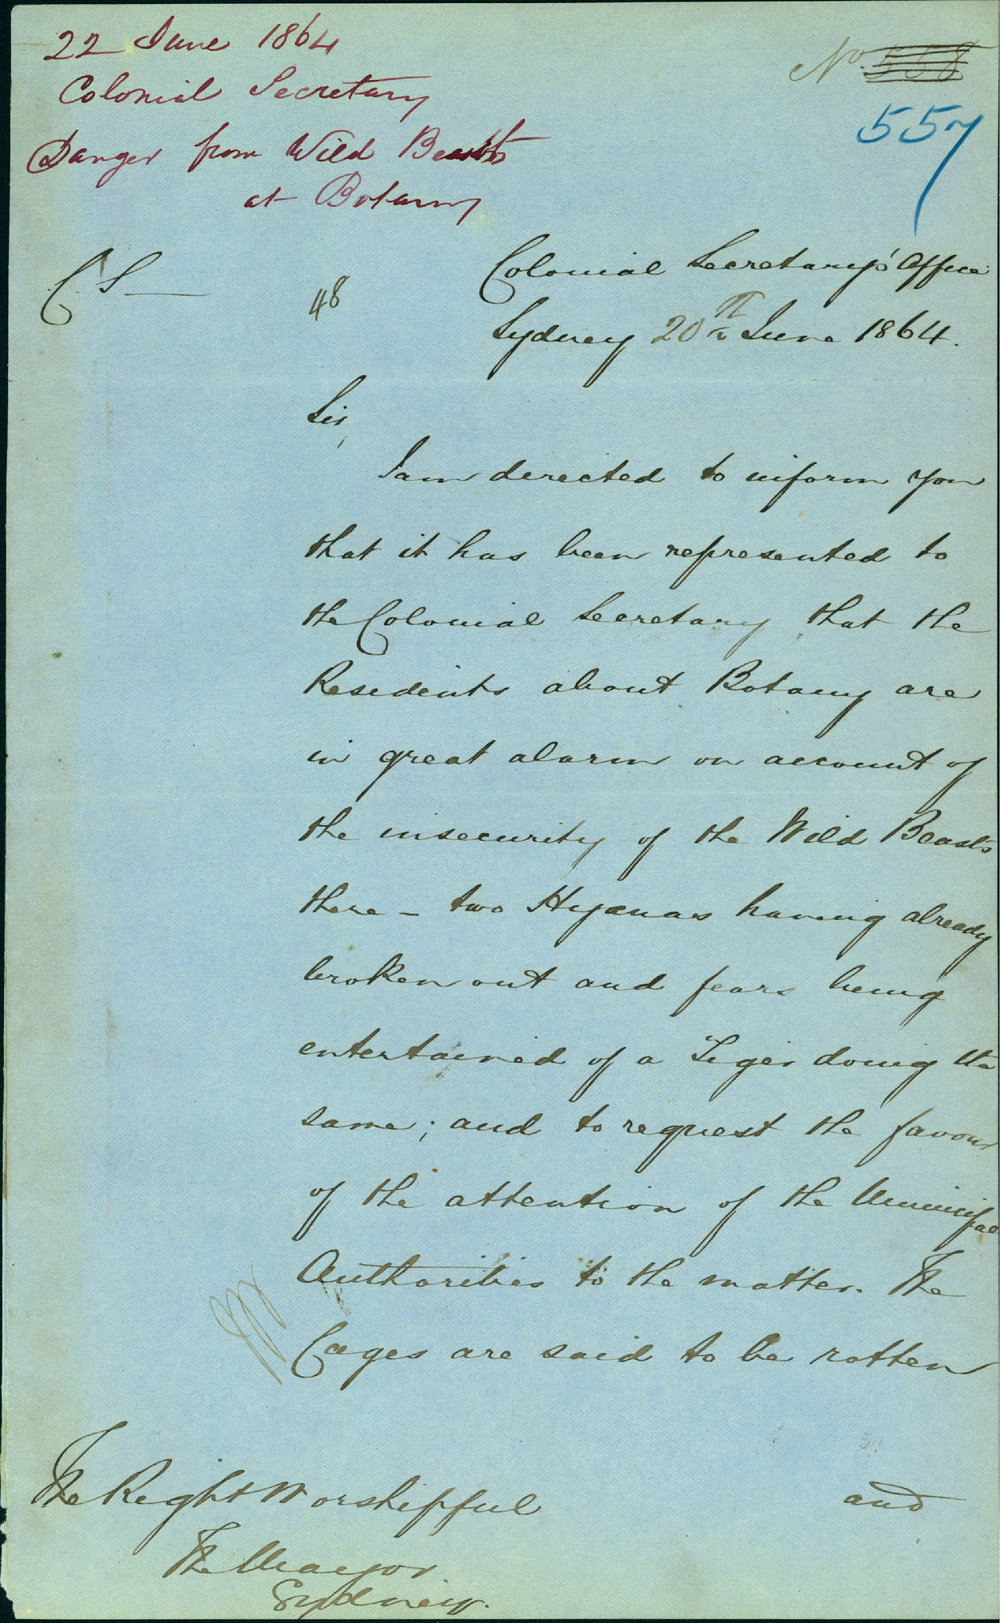 22 June 1864
Colonial Secretary
Danger from Wild Beasts
at Botany
No. 558
557
CS
48
Colonial Secretary's Office
Sydney 20th June 1864.
Sir,
I am directed to inform you
that it has been represented to
the Colonial Secretary that the
Residents about Botany are
in great alarm on account of
the insecurity of the Wild Beasts
there – two Hyænas having already
broken out and fears being
entertained of a Tiger doing the
same; and to request the favour
of the attention of the Municipal
Authorities to the matter. The
Cages are said to be rotten
and
The Right Worshipful
The Mayor
Sydney.